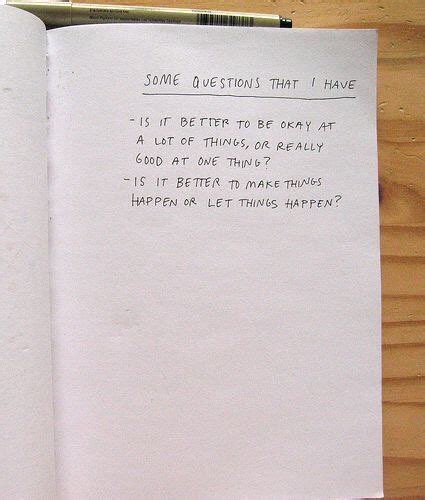 SOME QUESTIONS THAT I HAVE
- IS IT BETTER TO BE OKAY AT
A LOT OF THINGS, OR REALLY
GOOD AT ONE THING?
- IS IT BETTER TO MAKE THINGS
HAPPEN OR LET THINGS HAPPEN?